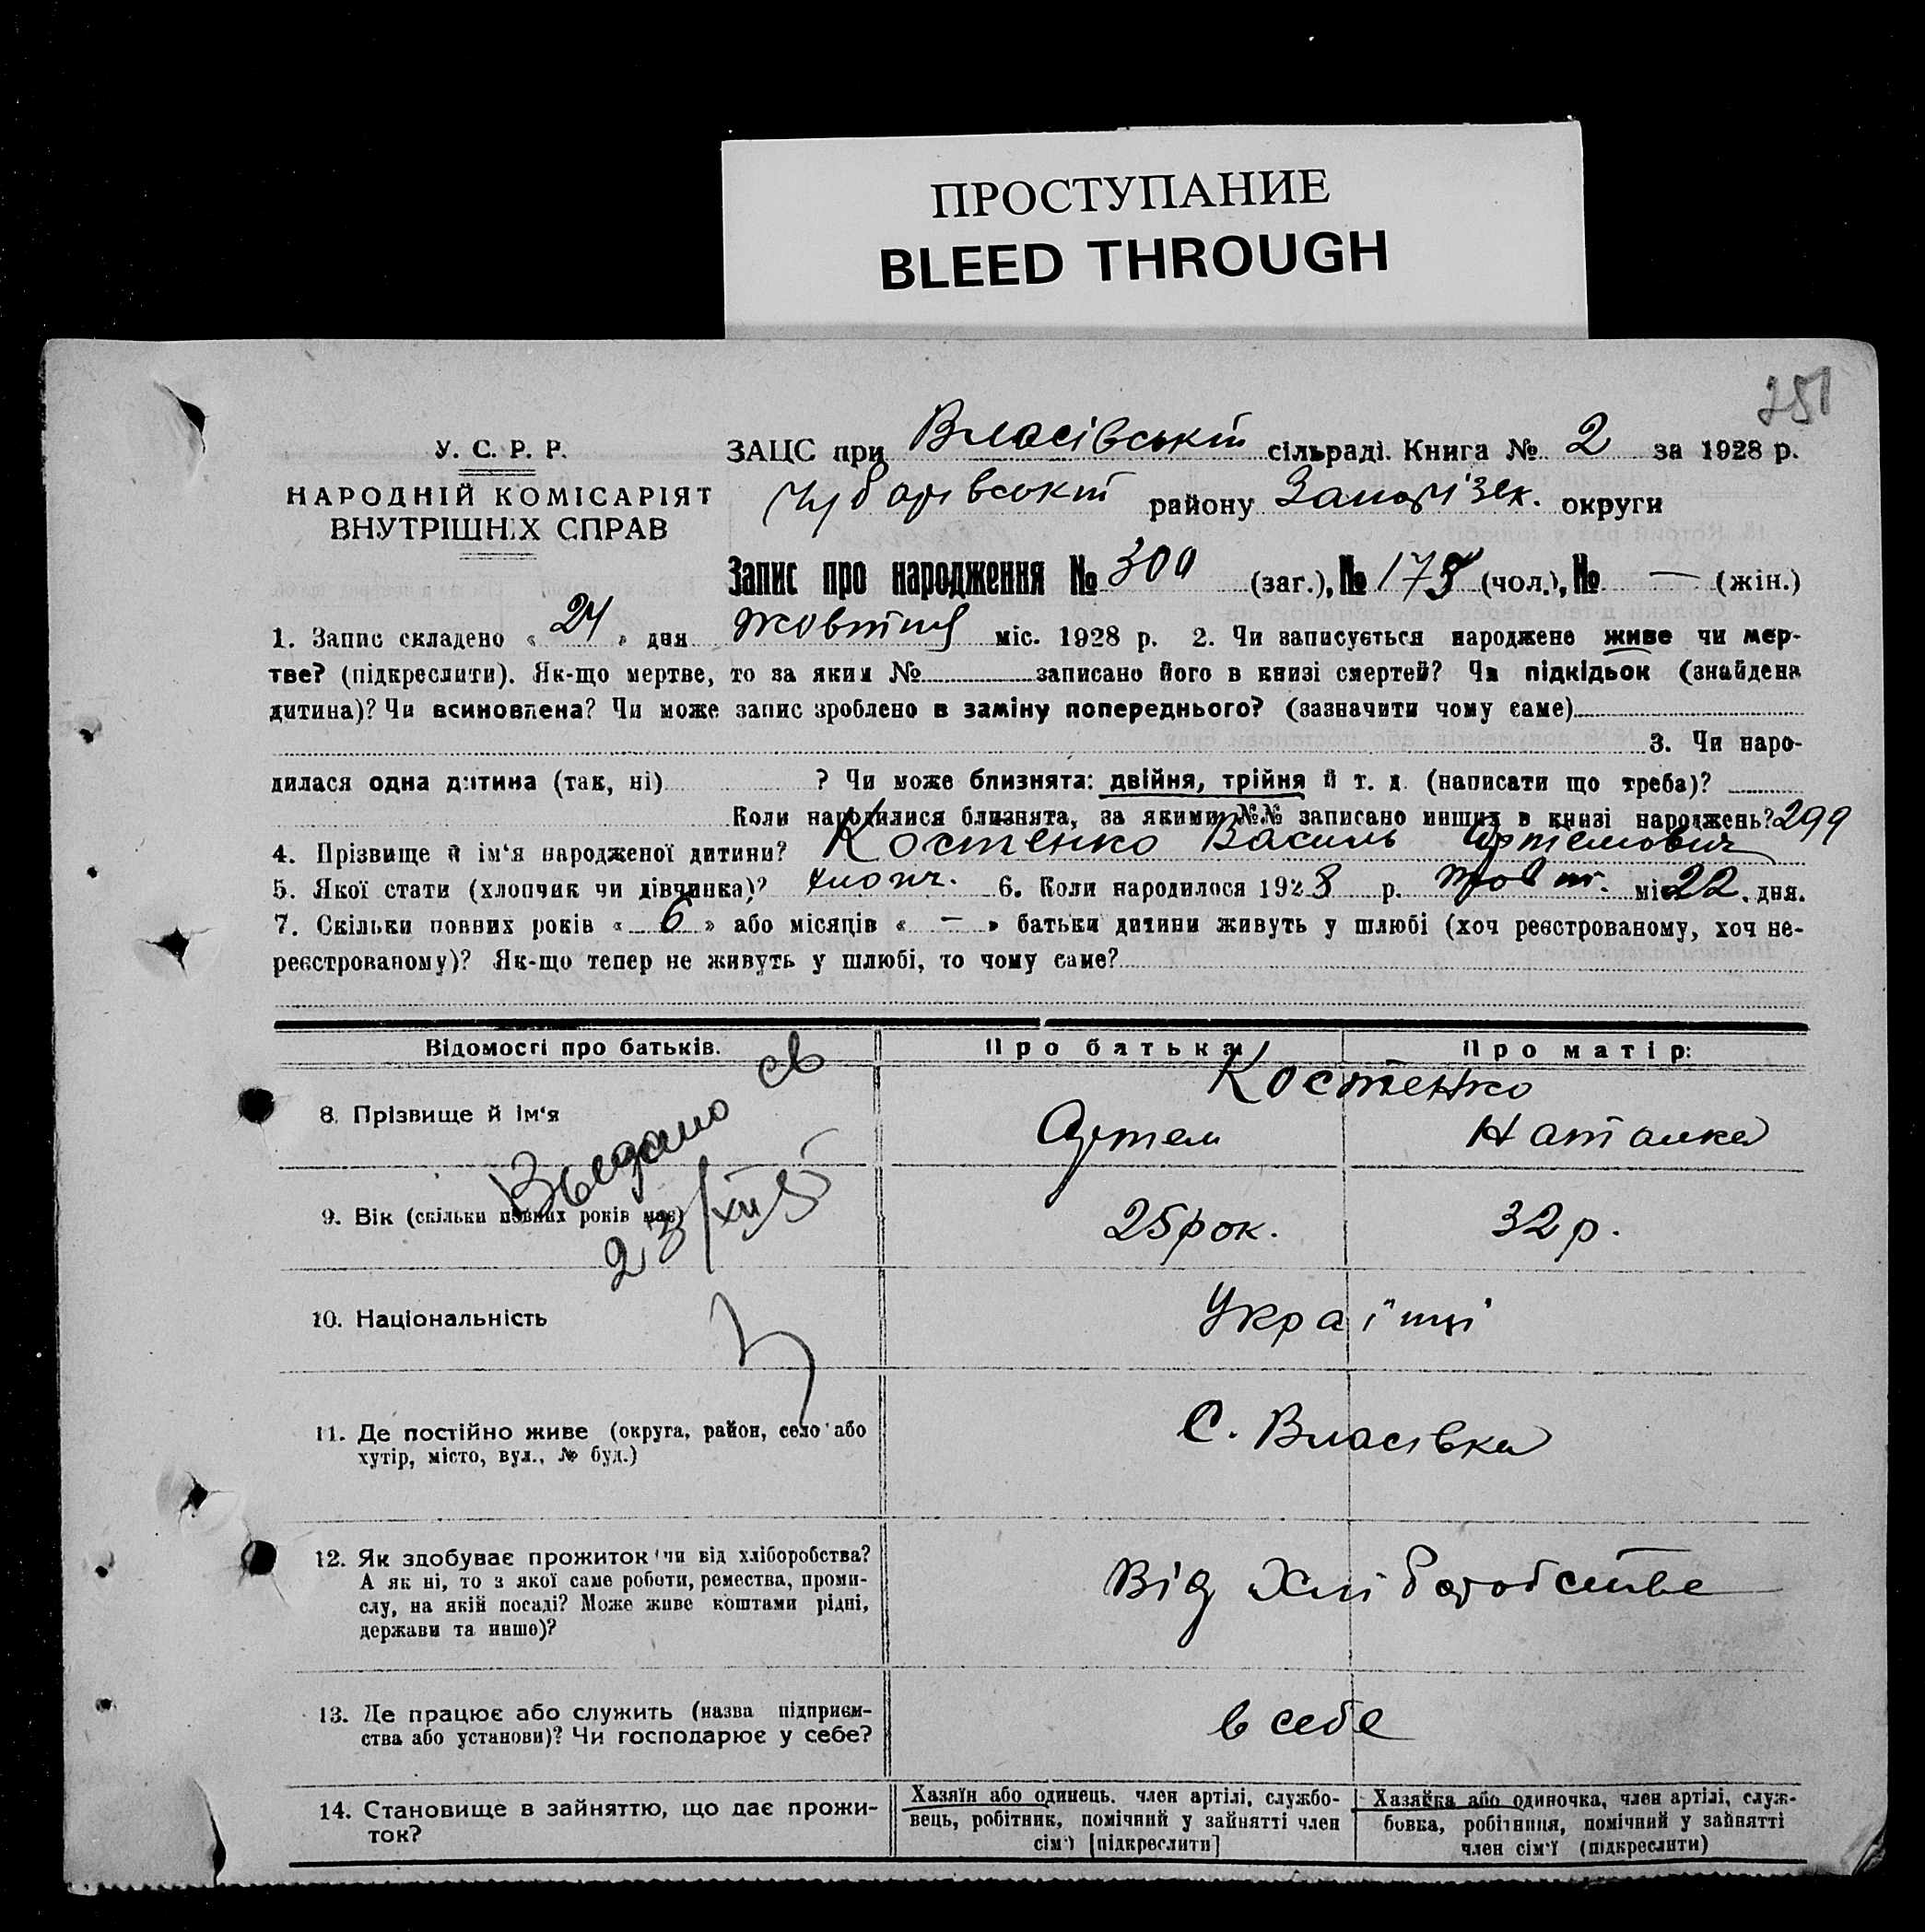 ПРОСТУПАНИЕ
BLEED THROUGH
251
У. С. Р. Р.
НАРОДНІЙ КОМІСАРІЯТ
ВНУТРІШНІХ СПРАВ
ЗАЦС при Власівській сільраді. Книга № 2 за 1928 р.
Чубарівський району Запорізьк. округи
Запис про народження № 300 (заг.), № 175 (чол.), № — (жін.)
1. Запис складено « 24 » дня жовтня міс. 1928 р. 2. Чи записується народжене живе чи мер-
тве? (підкреслити). Як-що мертве, то за яким № записано його в книзі смертей? Чи підкідьок (знайдена
дитина)? Чи всиновлена? Чи може запис зроблено в заміну попереднього? (зазначити чому саме)
3. Чи наро-
дилася одна дитина (так, ні) ? Чи може близнята: двійня, трійня й т. д. (написати що треба)?
Коли народилися близнята, за якими №№ записано инших в книзі народжень? 299
4. Прізвище й ім'я народженої дитини? Костенко Василь Артемович
5. Якої стати (хлопчик чи дівчинка)? хлопч. 6. Коли народилося 1928 р. жовт. міс 22. дня.
7. Скільки повних років « 6 » або місяців « — » батьки дитини живуть у шлюбі (хоч реєстрованому, хоч не-
реєстрованому)? Як-що тепер не живуть у шлюбі, то чому саме?
Відомості про батьків. Про батька Про матір:
8. Прізвище й ім'я Костенко
Артем Наталка
Выдано св
23/XII
9. Вік (скільки повних років має) 25 рок. 32 р.
10. Національність Українці
11. Де постійно живе (округа, район, село або
хутір, місто, вул., № буд.) С. Власівка
12. Як здобуває прожиток чи від хліборобства?
А як ні, то з якої саме роботи, ремества, проми-
слу, на якій посаді? Може живе коштами рідні,
держави та инше)? Від Хліборобства
13. Де працює або служить (назва підприєм-
ства або установи)? Чи господарює у себе? в себе
14. Становище в зайняттю, що дає прожи-
ток?
Хазяїн або одинець, член артілі, службо-
вець, робітник, помічний у зайнятті член
сім'ї [підкреслити]
Хазяйка або одиночка, член артілі, служ-
бовка, робітниця, помічний у зайнятті
член сім'ї (підкреслити)